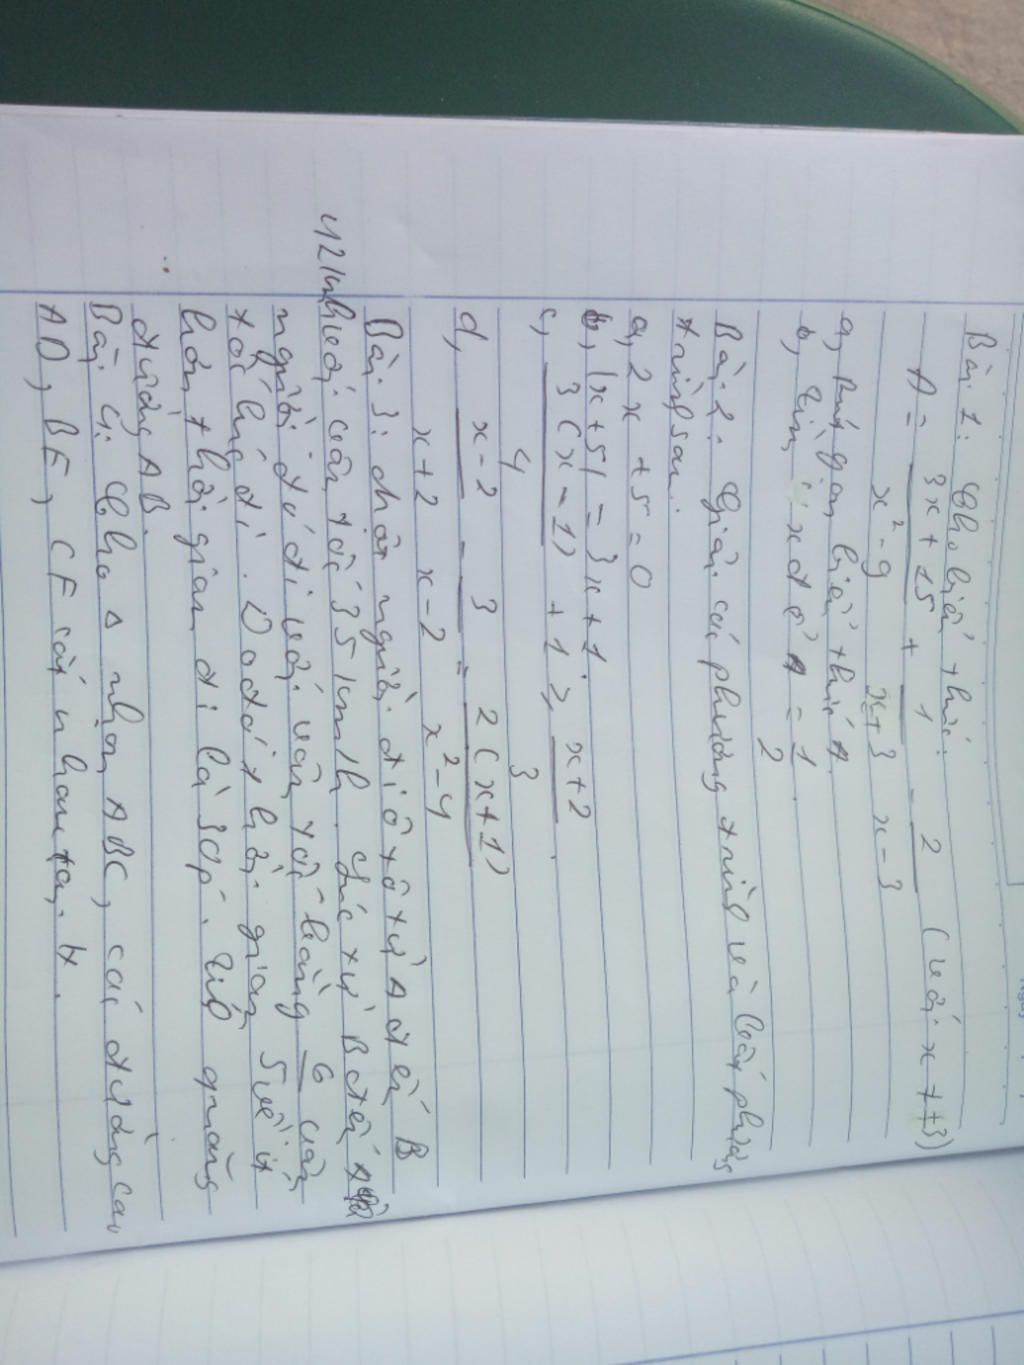 Bài 1: Cho biểu thức:
A = \frac{3x + 15}{x^2 - 9} + \frac{1}{x + 3} - \frac{2}{x - 3} (với x ≠ ±3)
a, Rút gọn biểu thức A
b, Tìm x để A = \frac{1}{2}
Bài 2: Giải các phương trình và bất phương
trình sau:
a, 2x + 5 = 0
b, |x + 5| = 3x + 1
c, \frac{3(x - 1)}{4} + 1 ≥ \frac{x + 2}{3}
d, \frac{x - 2}{x + 2} - \frac{3}{x - 2} = \frac{2(x + 11)}{x^2 - 4}
Bài 3: Một người đi ô tô từ A đến B
với vận tốc 35 km/h. Lúc từ B đến A
người đó đi với vận tốc bằng \frac{6}{5} vận
42 km/h
tốc lúc đi. Do đó thời gian về ít
hơn thời gian đi là 30p. Tính quãng
đường AB.
Bài 4: Cho Δ nhọn ABC, các đường cao
AD, BE, CF cắt nhau tại H.